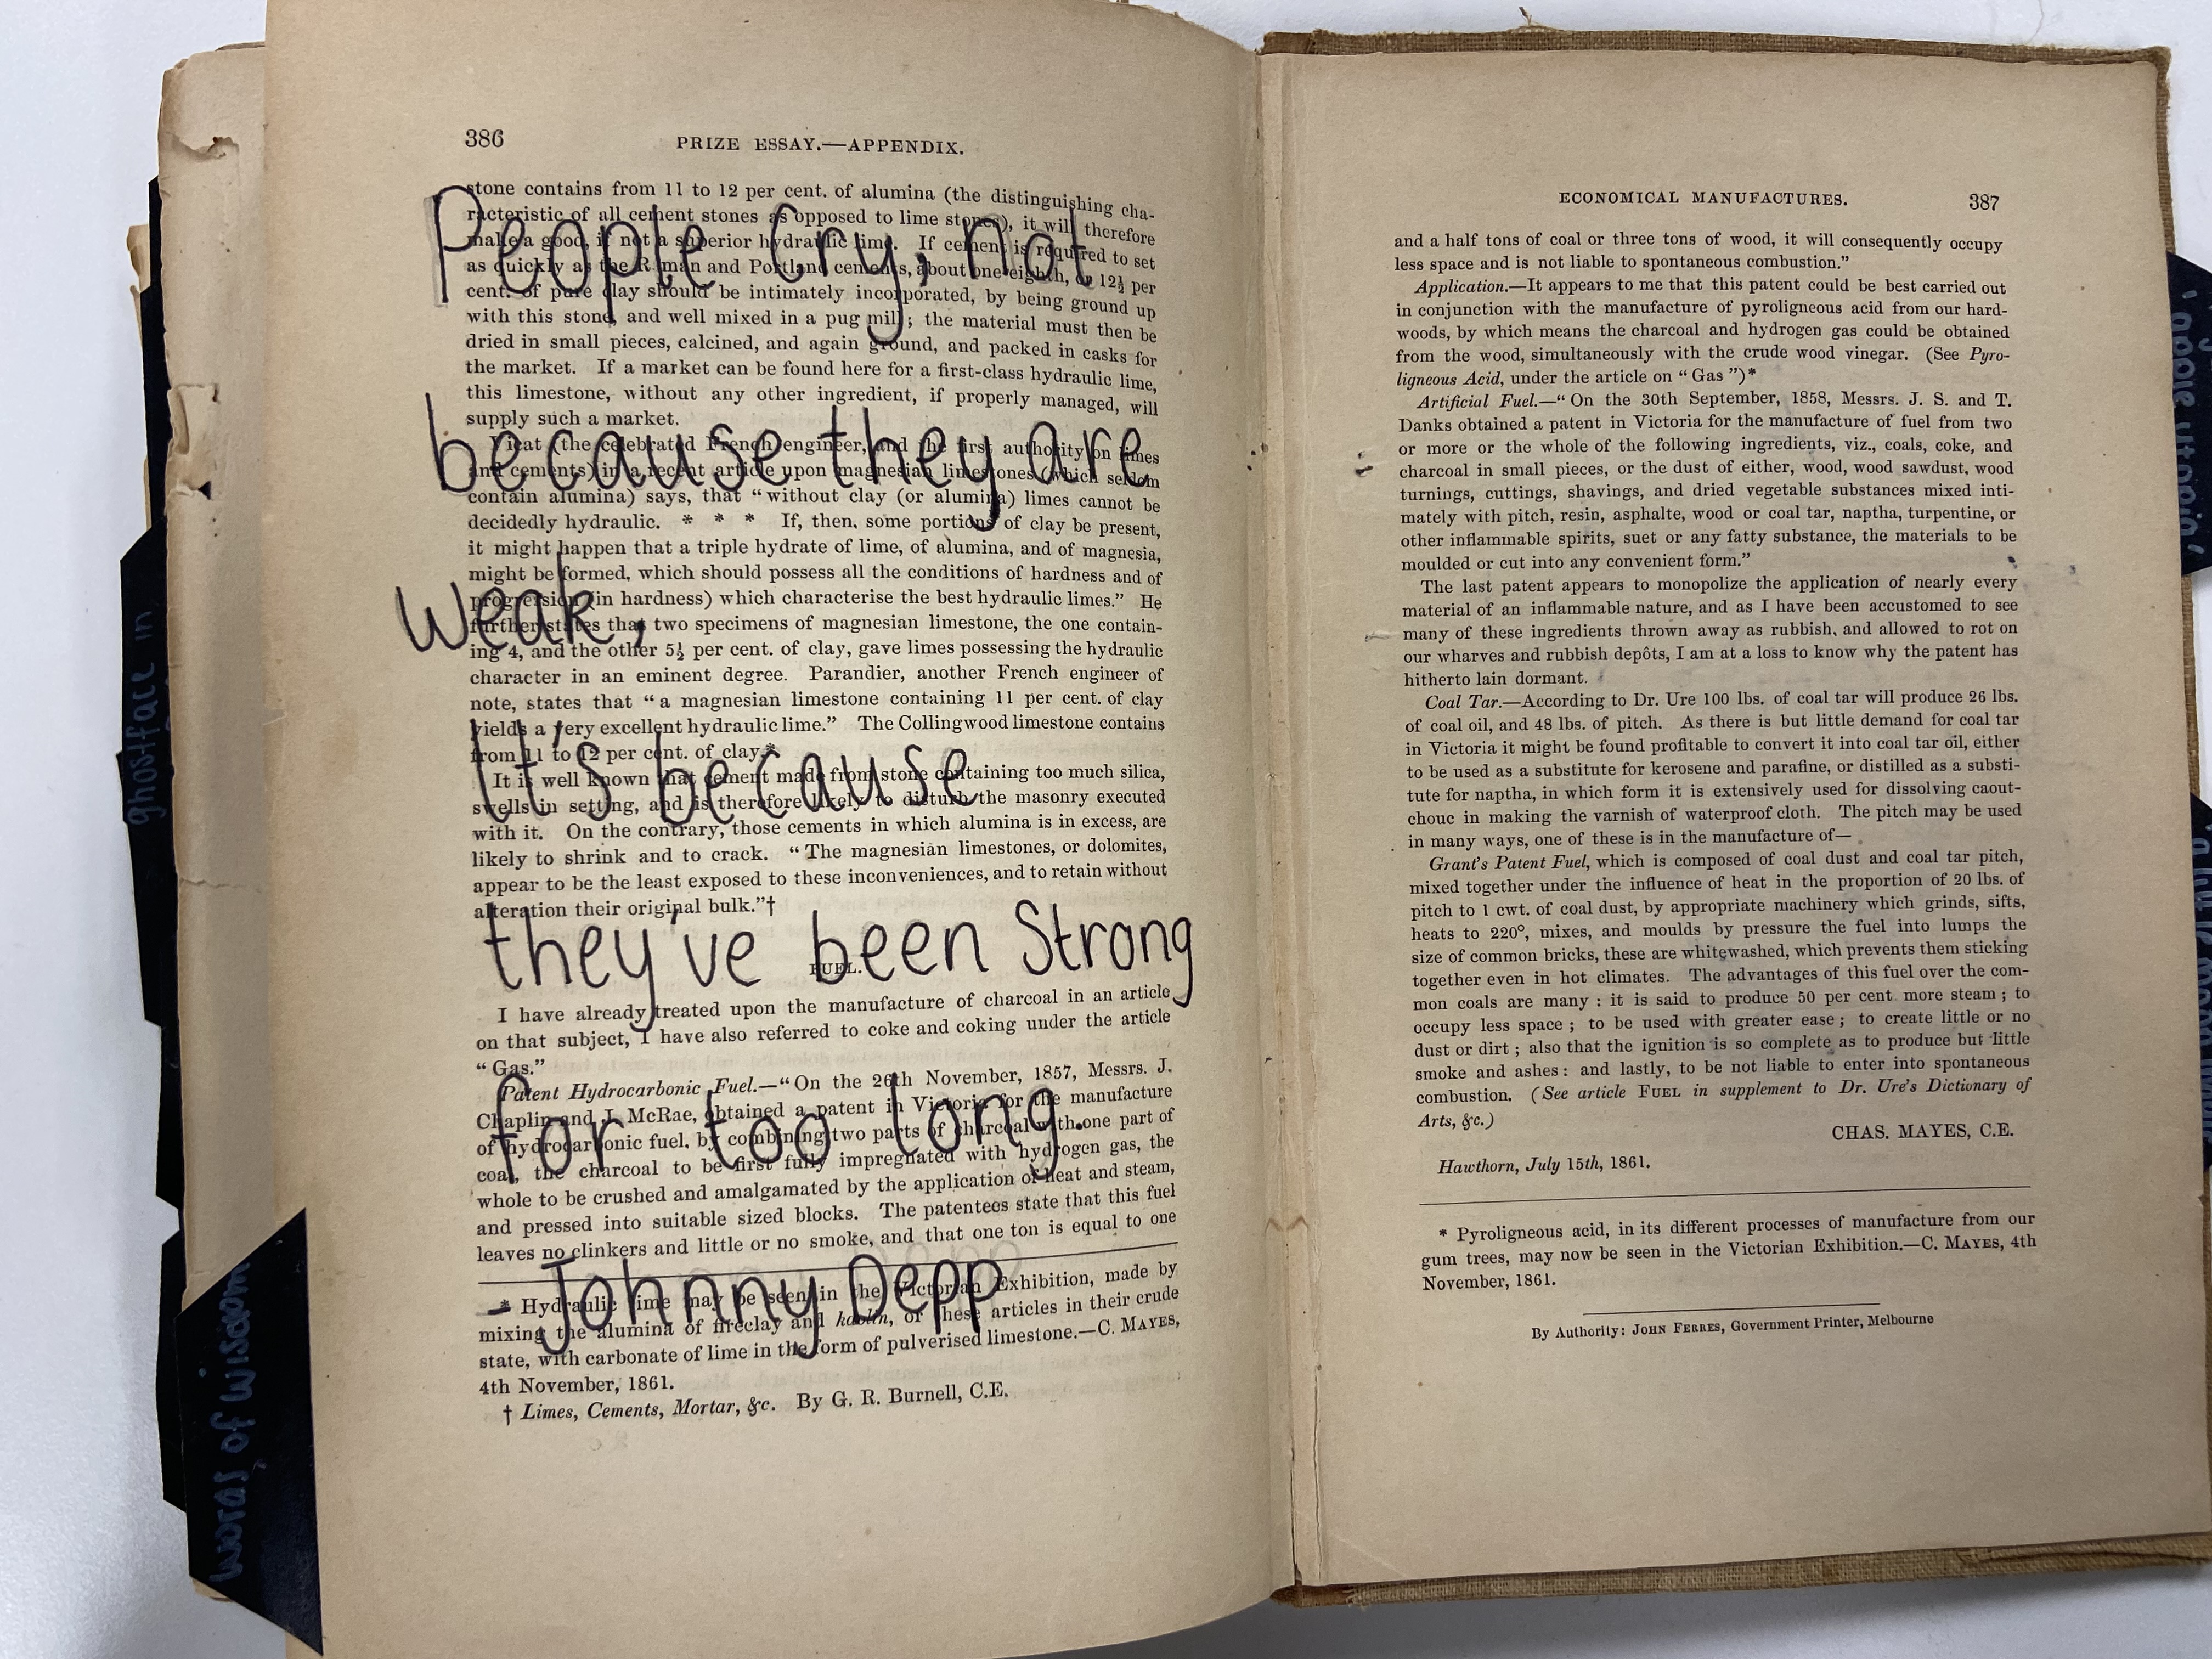 386 PRIZE ESSAY.—APPENDIX.
stone contains from 11 to 12 per cent. of alumina (the distinguishing cha-
racteristic of all cement stones as opposed to lime stones), it will therefore
make a good, if not a superior hydraulic lime. If cement is required to set
as quickly as the Roman and Portland cements, about one eighth, or 12½ per
cent. of pure clay should be intimately incorporated, by being ground up
with this stone, and well mixed in a pug mill; the material must then be
dried in small pieces, calcined, and again ground, and packed in casks for
the market. If a market can be found here for a first-class hydraulic lime,
this limestone, without any other ingredient, if properly managed, will
supply such a market.
Vicat (the celebrated French engineer, and the first authority on limes
and cements) in a recent article upon magnesian limestones (which seldom
contain alumina) says, that “without clay (or alumina) limes cannot be
decidedly hydraulic. * * * If, then, some portions of clay be present,
it might happen that a triple hydrate of lime, of alumina, and of magnesia,
might be formed, which should possess all the conditions of hardness and of
progression (in hardness) which characterise the best hydraulic limes.” He
further states that two specimens of magnesian limestone, the one contain-
ing 4, and the other 5½ per cent. of clay, gave limes possessing the hydraulic
character in an eminent degree. Parandier, another French engineer of
note, states that “a magnesian limestone containing 11 per cent. of clay
yields a very excellent hydraulic lime.” The Collingwood limestone contains
from 11 to 12 per cent. of clay.*
It is well known that cement made from stone containing too much silica,
swells in setting, and is therefore likely to disturb the masonry executed
with it. On the contrary, those cements in which alumina is in excess, are
likely to shrink and to crack. “The magnesian limestones, or dolomites,
appear to be the least exposed to these inconveniences, and to retain without
alteration their original bulk.”†
FUEL.
I have already treated upon the manufacture of charcoal in an article
on that subject, I have also referred to coke and coking under the article
“Gas.”
Patent Hydrocarbonic Fuel.—“On the 26th November, 1857, Messrs. J.
Chaplin and J. McRae, obtained a patent in Victoria for the manufacture
of hydrocarbonic fuel, by combining two parts of charcoal with one part of
coal, the charcoal to be first fully impregnated with hydrogen gas, the
whole to be crushed and amalgamated by the application of heat and steam,
and pressed into suitable sized blocks. The patentees state that this fuel
leaves no clinkers and little or no smoke, and that one ton is equal to one
* Hydraulic lime may be seen in the Victorian Exhibition, made by
mixing the alumina of fireclay and kaolin, or these articles in their crude
state, with carbonate of lime in the form of pulverised limestone.—C. MAYES,
4th November, 1861.
† Limes, Cements, Mortar, &c. By G. R. Burnell, C.E.
People cry, not
because they are
weak,
It's because
they've been Strong
for too long.
- Johnny Depp
ghostface in
words of wisdom
ECONOMICAL MANUFACTURES. 387
and a half tons of coal or three tons of wood, it will consequently occupy
less space and is not liable to spontaneous combustion.”
Application.—It appears to me that this patent could be best carried out
in conjunction with the manufacture of pyroligneous acid from our hard-
woods, by which means the charcoal and hydrogen gas could be obtained
from the wood, simultaneously with the crude wood vinegar. (See Pyro-
ligneous Acid, under the article on “Gas”)*
Artificial Fuel.—“On the 30th September, 1858, Messrs. J. S. and T.
Danks obtained a patent in Victoria for the manufacture of fuel from two
or more or the whole of the following ingredients, viz., coals, coke, and
charcoal in small pieces, or the dust of either, wood, wood sawdust, wood
turnings, cuttings, shavings, and dried vegetable substances mixed inti-
mately with pitch, resin, asphalte, wood or coal tar, naptha, turpentine, or
other inflammable spirits, suet or any fatty substance, the materials to be
moulded or cut into any convenient form.”
The last patent appears to monopolize the application of nearly every
material of an inflammable nature, and as I have been accustomed to see
many of these ingredients thrown away as rubbish, and allowed to rot on
our wharves and rubbish depôts, I am at a loss to know why the patent has
hitherto lain dormant.
Coal Tar.—According to Dr. Ure 100 lbs. of coal tar will produce 26 lbs.
of coal oil, and 48 lbs. of pitch. As there is but little demand for coal tar
in Victoria it might be found profitable to convert it into coal tar oil, either
to be used as a substitute for kerosene and parafine, or distilled as a substi-
tute for naptha, in which form it is extensively used for dissolving caout-
chouc in making the varnish of waterproof cloth. The pitch may be used
in many ways, one of these is in the manufacture of—
Grant's Patent Fuel, which is composed of coal dust and coal tar pitch,
mixed together under the influence of heat in the proportion of 20 lbs. of
pitch to 1 cwt. of coal dust, by appropriate machinery which grinds, sifts,
heats to 220°, mixes, and moulds by pressure the fuel into lumps the
size of common bricks, these are whitewashed, which prevents them sticking
together even in hot climates. The advantages of this fuel over the com-
mon coals are many : it is said to produce 50 per cent more steam ; to
occupy less space ; to be used with greater ease ; to create little or no
dust or dirt ; also that the ignition is so complete as to produce but little
smoke and ashes : and lastly, to be not liable to enter into spontaneous
combustion. (See article FUEL in supplement to Dr. Ure's Dictionary of
Arts, &c.)
CHAS. MAYES, C.E.
Hawthorn, July 15th, 1861.
* Pyroligneous acid, in its different processes of manufacture from our
gum trees, may now be seen in the Victorian Exhibition.—C. MAYES, 4th
November, 1861.
By Authority: JOHN FERRES, Government Printer, Melbourne